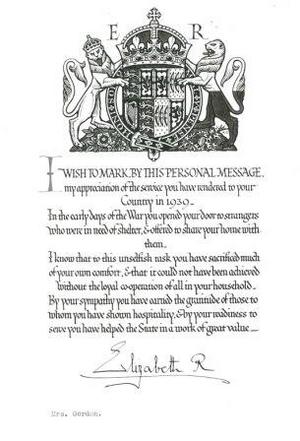 E R
I WISH TO MARK, BY THIS PERSONAL MESSAGE,
my appreciation of the service you have rendered to your
Country in 1939.
In the early days of the War you opened your door to strangers
who were in need of shelter, & offered to share your home with
them.
I know that to this unselfish task you have sacrificed much
of your own comfort, & that it could not have been achieved
without the loyal co-operation of all in your household.
By your sympathy you have earned the gratitude of those to
whom you have shown hospitality, & by your readiness to
serve you have helped the State in a work of great value
Elizabeth R
Mrs. Gordon.